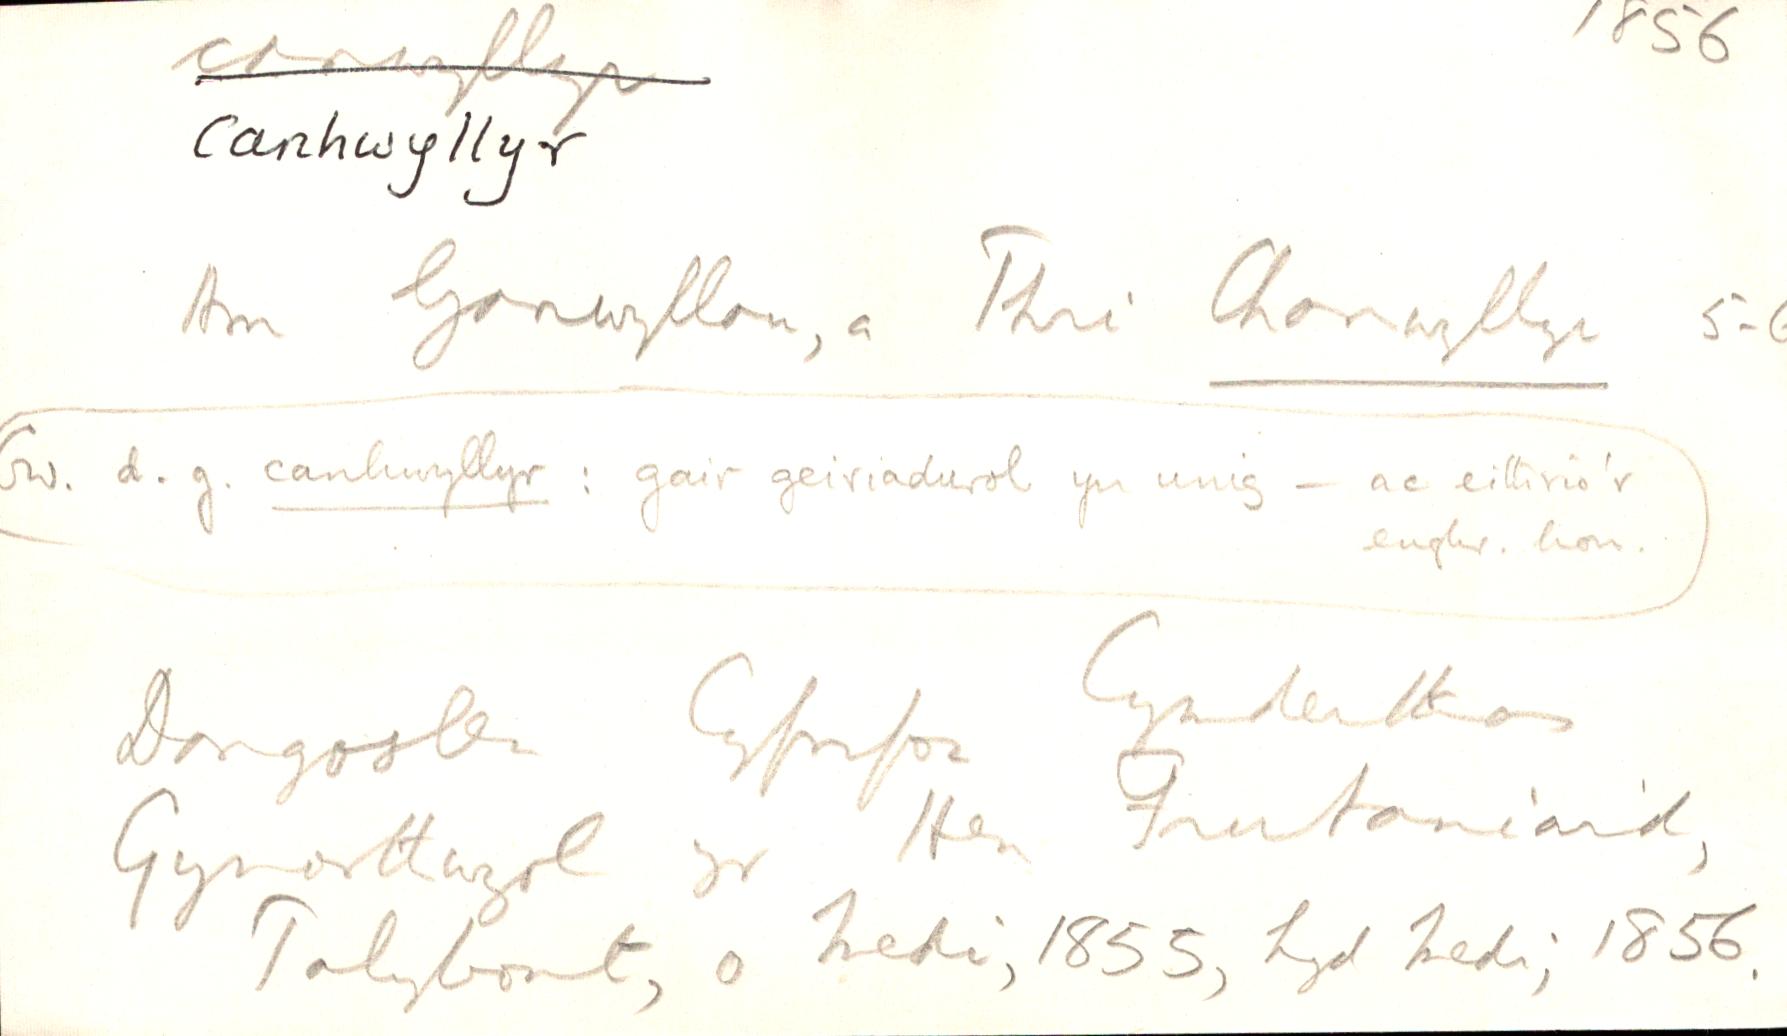 canwyllyr 1856
canhwyllyr
Am Ganwyllau, a Thri Chanwyllyr 5-6
Gw. d. g. canhwyllyr : gair geiriadurol yn unig – ac eithrio'r
enghr. hon.
Dangoslen Cyfrifon Cymdeithas
Gynorthwyol yr Hen Frutaniaid,
Talybont, o Medi, 1855, hyd Medi, 1856.